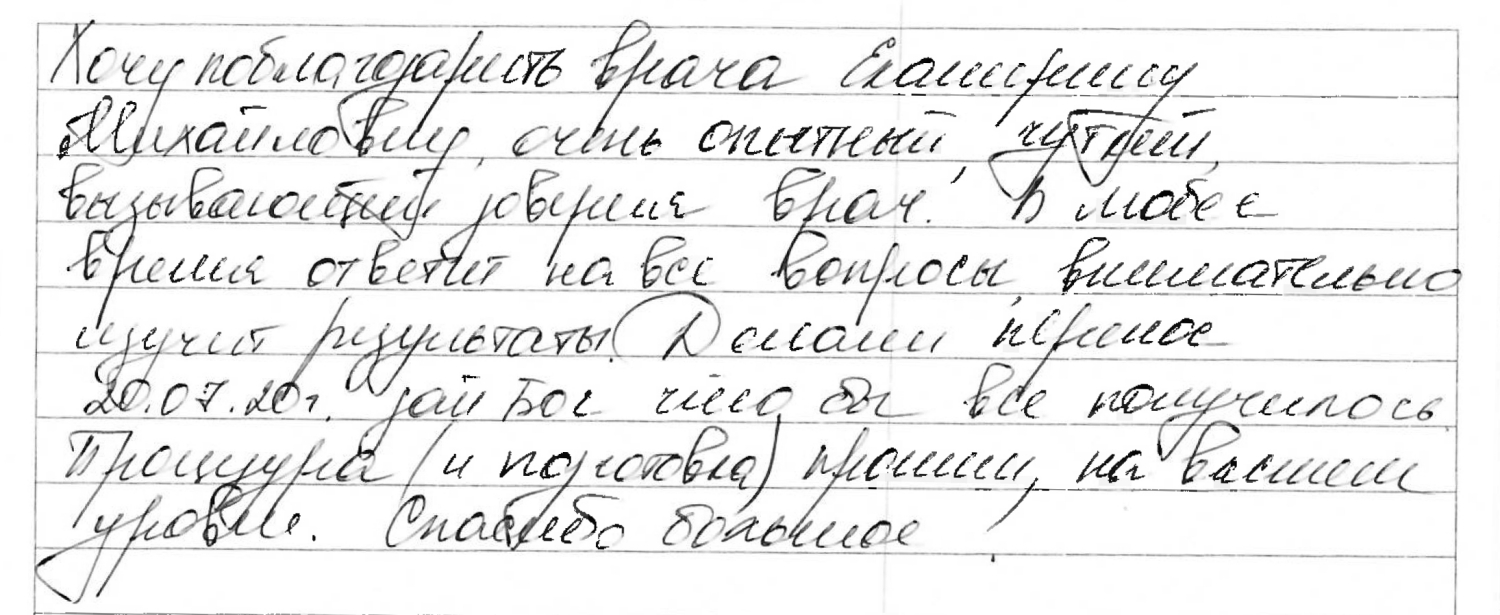 Хочу поблагодарить врача Екатерину
Михайловну, очень опытный, чуткий,
вызывающий доверия врач. В любое
время ответит на все вопросы, внимательно
изучит результаты. Делали перенос
20.07.20г. дай Бог что бы все получилось.
Процедура (и подготовка) прошли, на высшем
уровне. Спасибо большое.